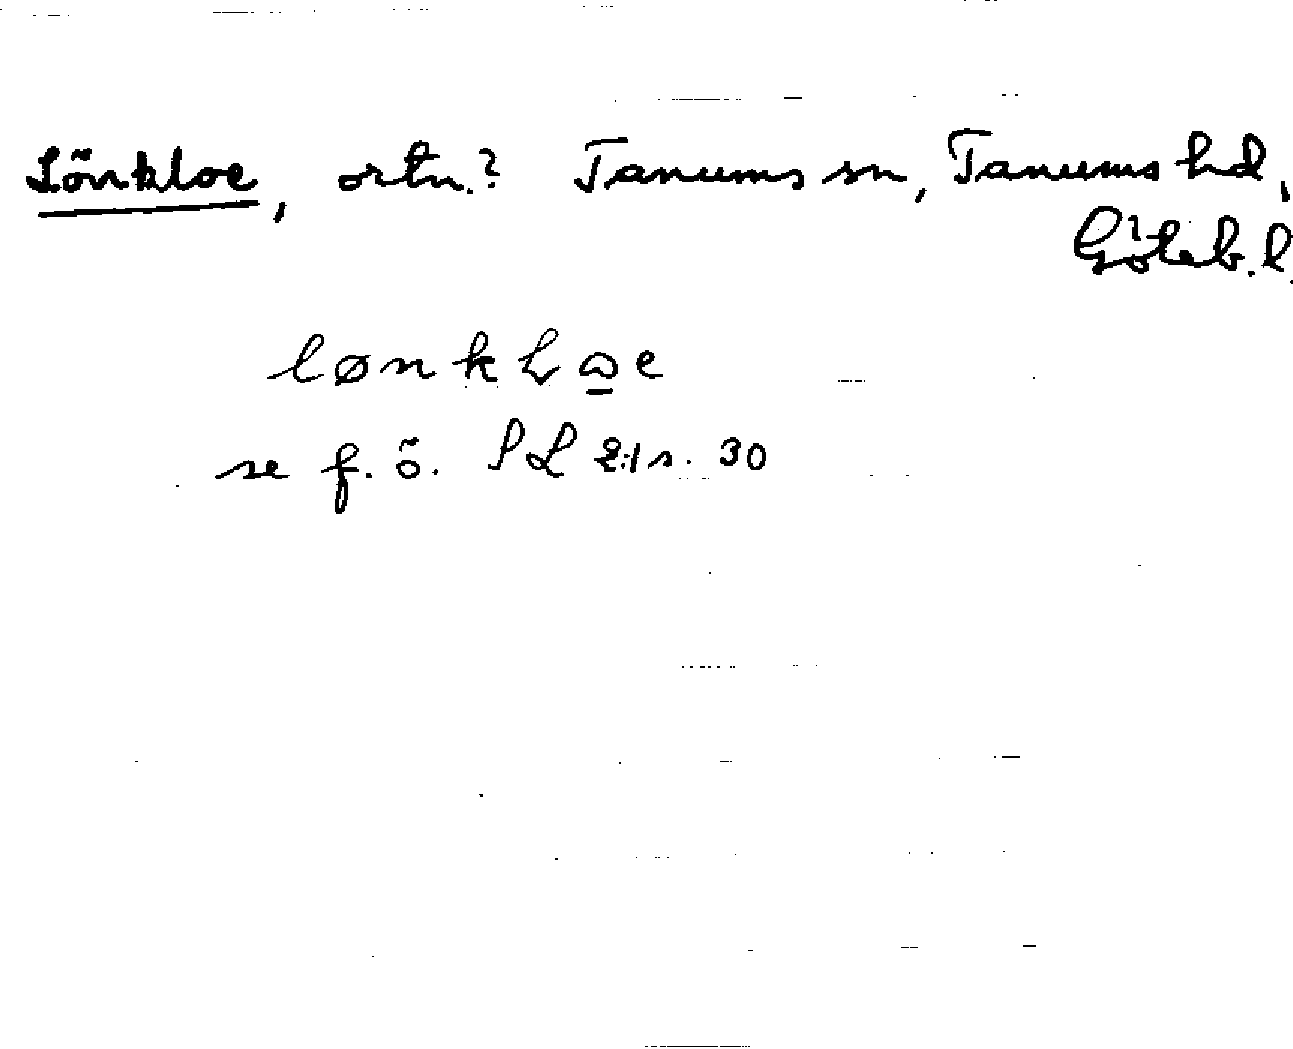 Lönkloe, ortn.? Tanums sn, Tanums hd,
Göteb. l.
se f. ö. PL 2:1 s. 30